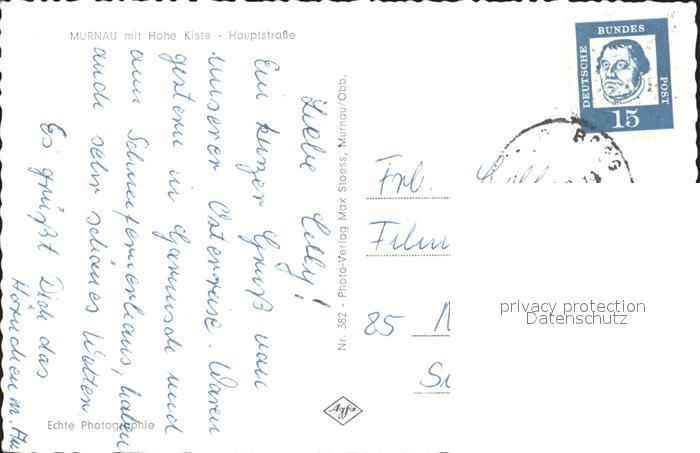 MURNAU mit Hohe Kiste - Hauptstraße
Liebe Lilly!
Ein kurzer Gruß von
unserer Osterreise. Waren
gestern in Garmisch und
am Schneefernerhaus, haben
auch sehr schönes Wetter.
Es grüßt Dich das
Echte Photographie
Nr. 382 - Photo-Verlag Max Stoess, Murnau/Obb.
Agfa
DEUTSCHE
BUNDES
POST
15
Frl.
85
privacy protection
Datenschutz